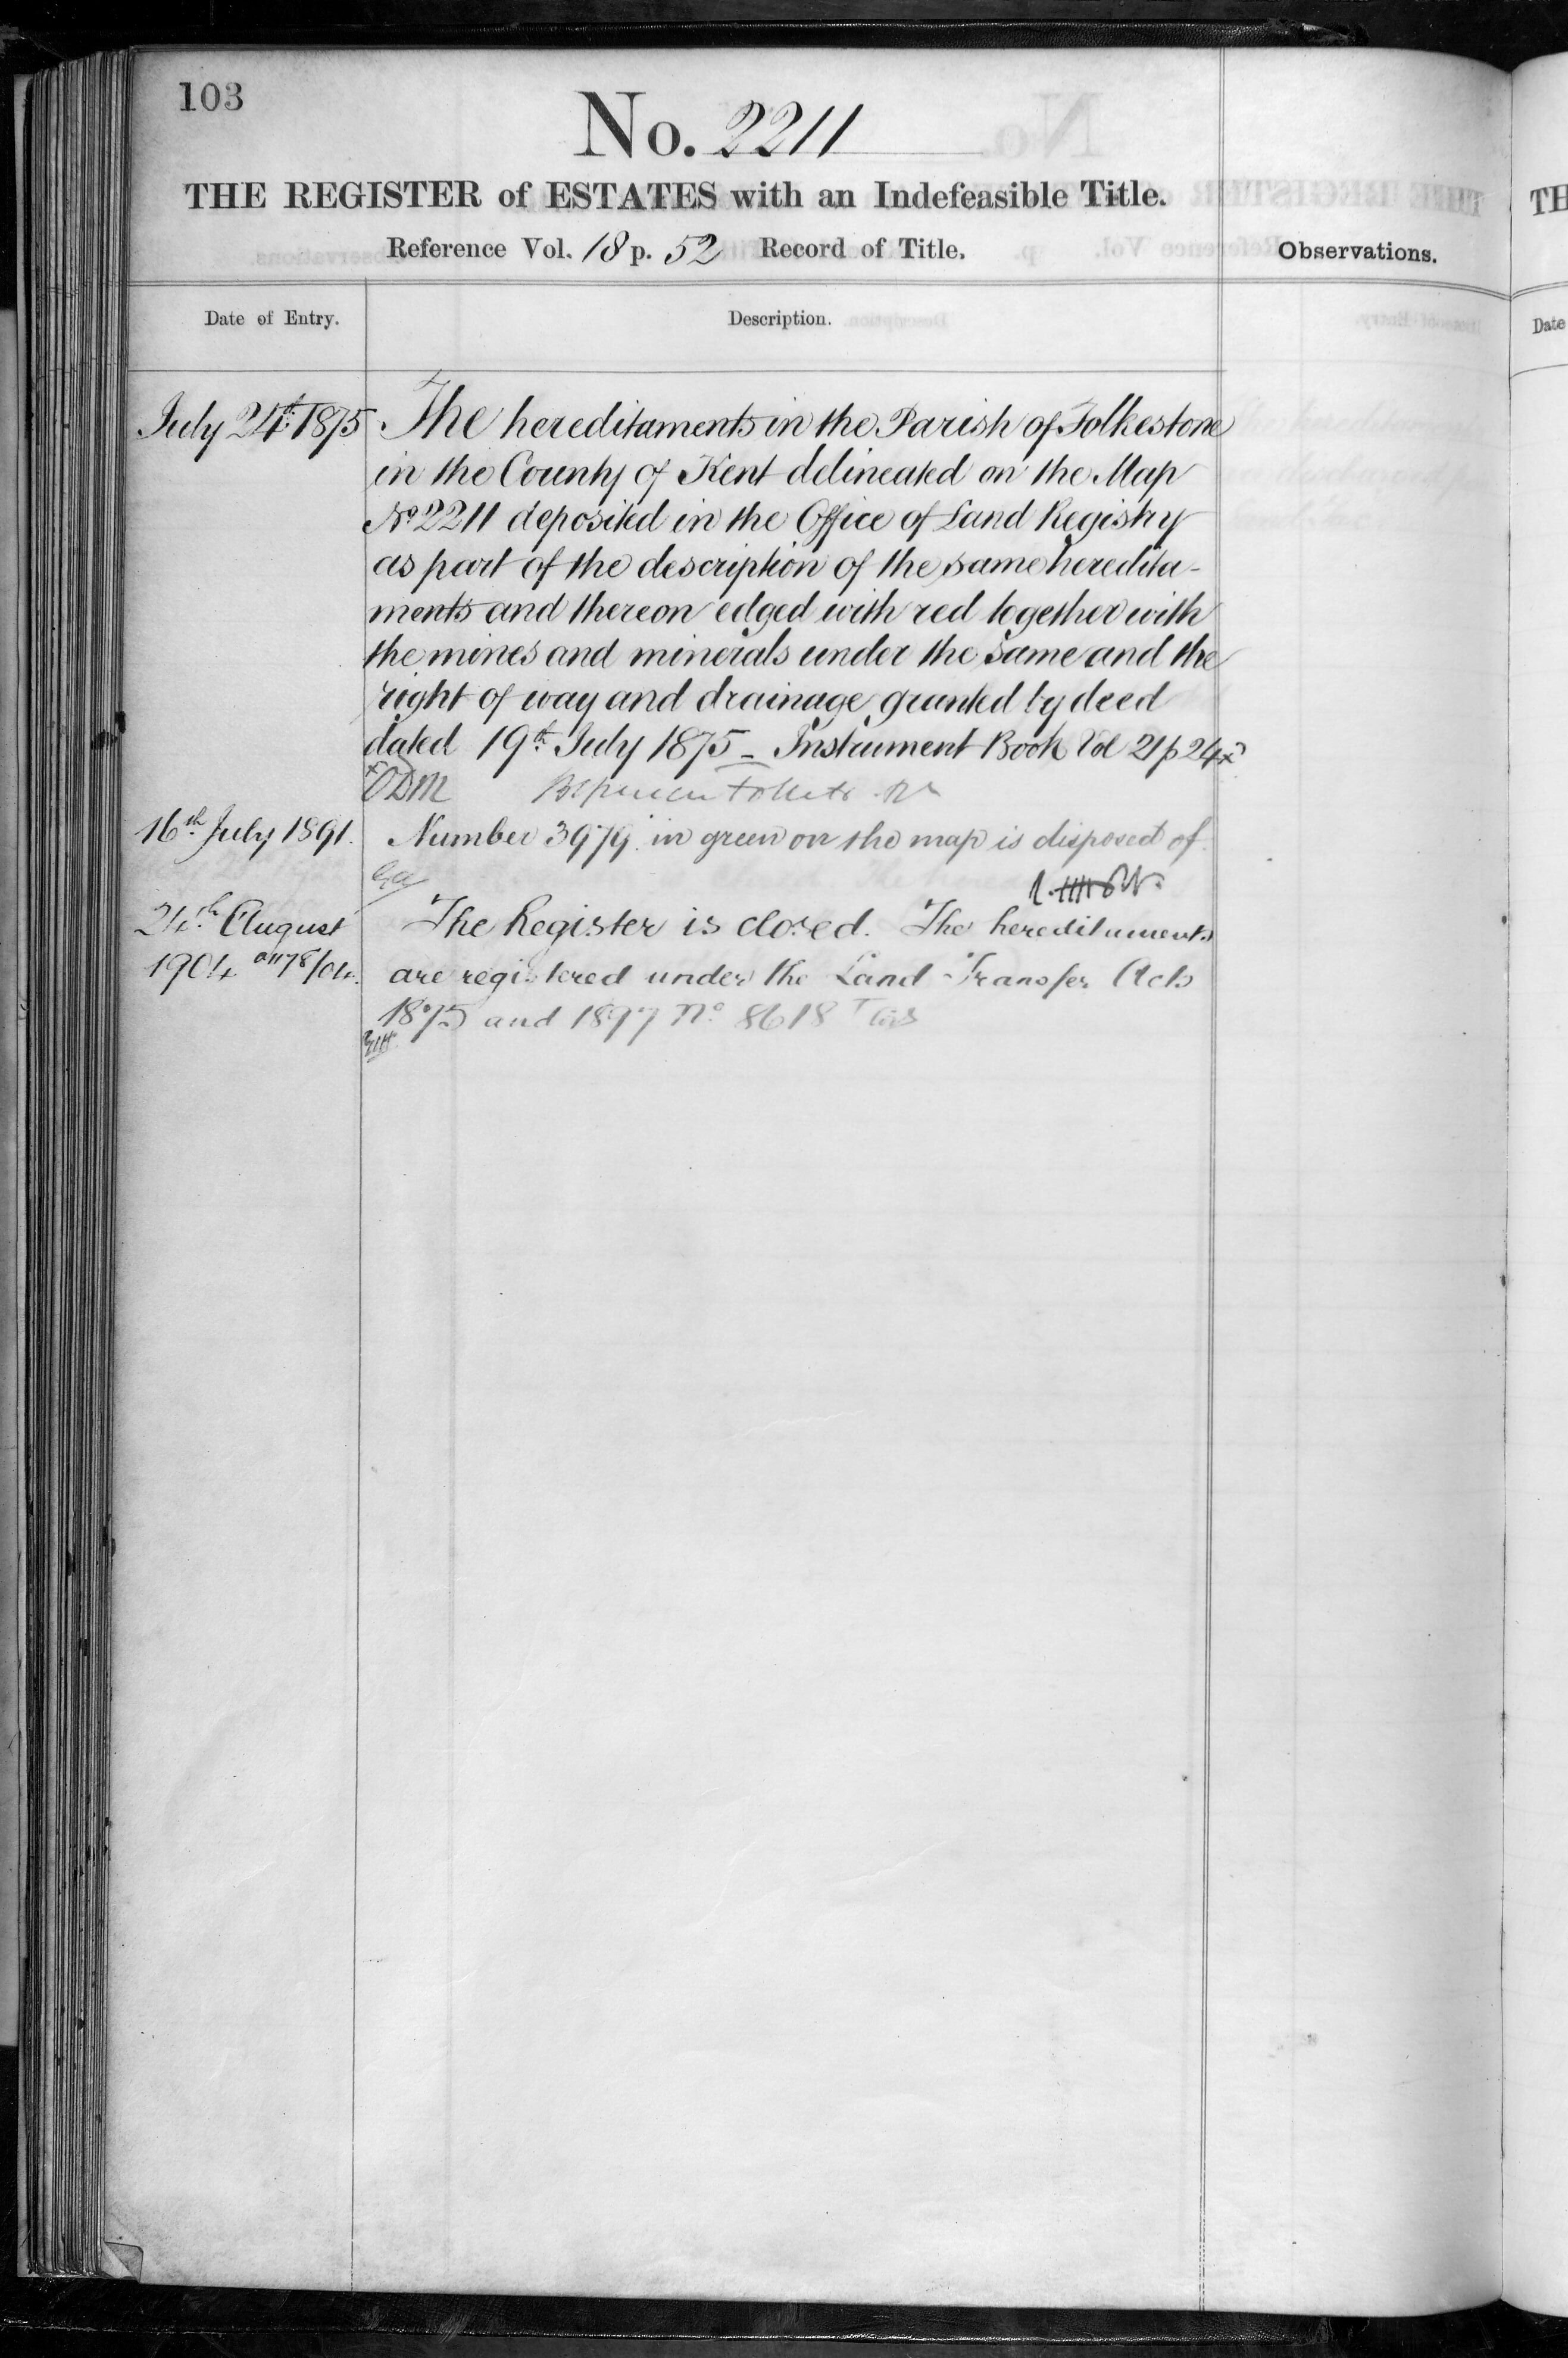 103
No. 2211
THE REGISTER of ESTATES with an Indefeasible Title.
Reference Vol. 18 p. 52 Record of Title.
Observations.
Date of Entry.
Description.
July 24th 1875
The hereditaments in the Parish of Folkestone
in the County of Kent delineated on the Map
No 2211 deposited in the Office of Land Registry
as part of the description of the same heredita-
ments and thereon edged with red together with
the mines and minerals under the same and the
right of way and drainage granted by deed
dated 19th July 1875 - Instrument Book Vol 21 p 24
ODM
16th July 1891.
Number 3979 in green on the map is disposed of.
24th August
1904
The Register is closed. The hereditaments
are registered under the Land Transfer Acts
1875 and 1897 No 8618
TH
Date